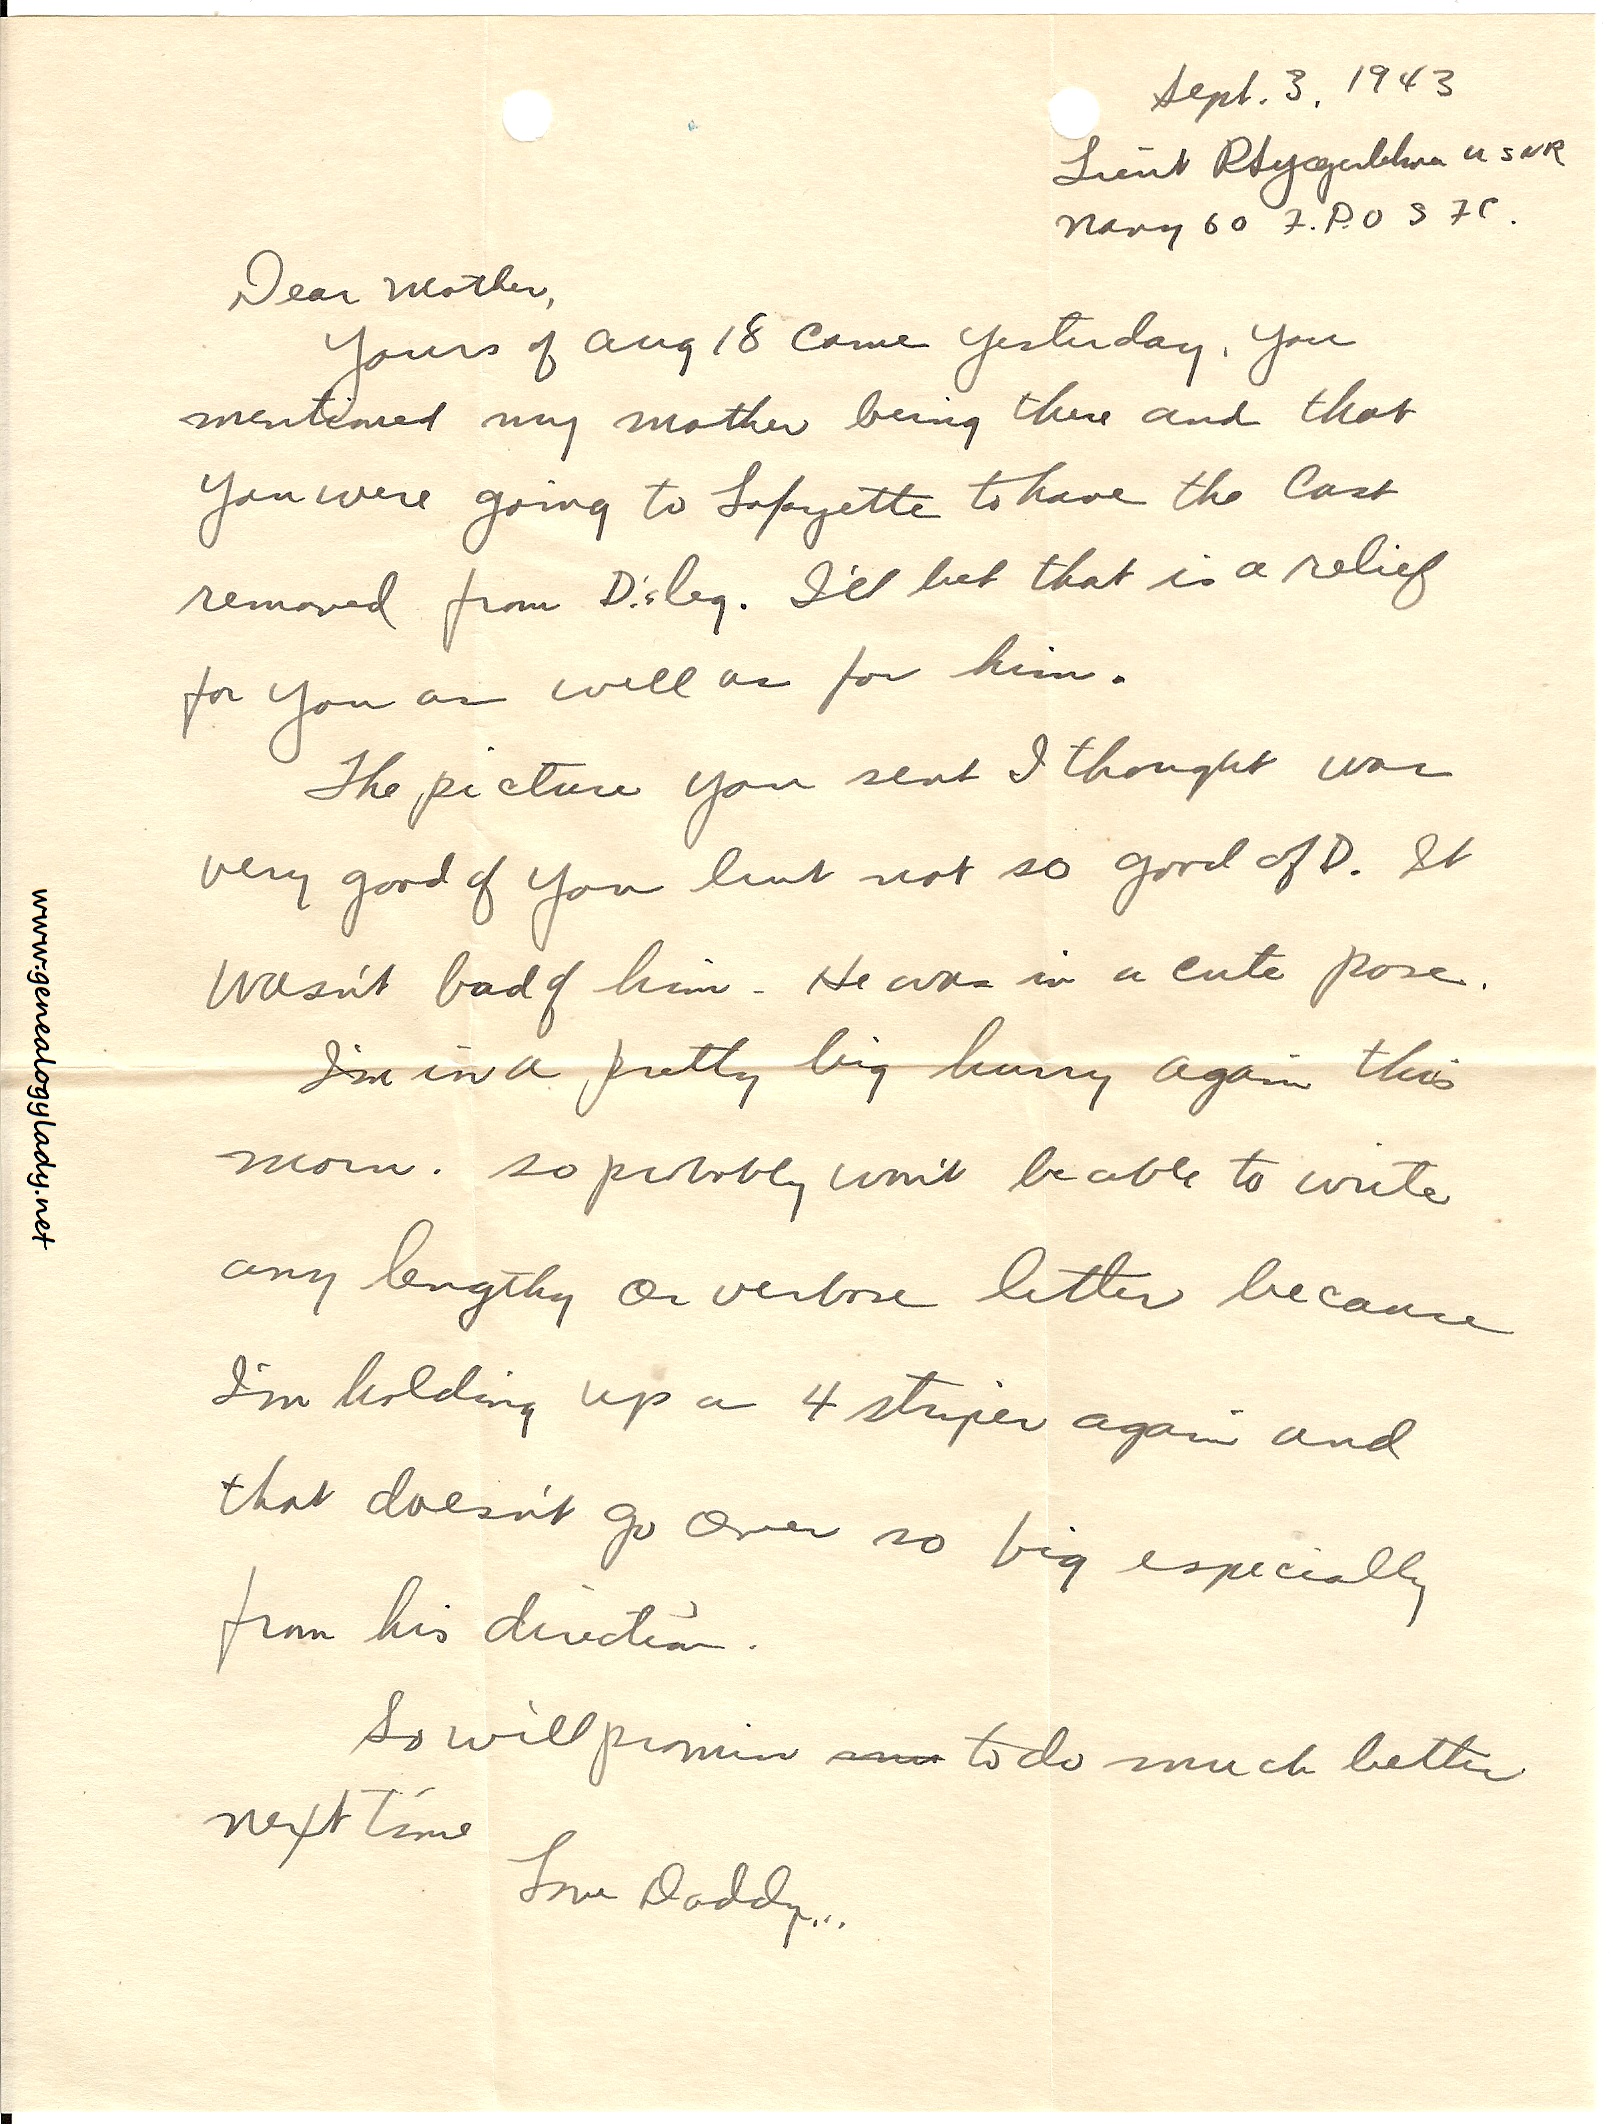 Sept. 3, 1943
Lieut R Yegerlehner USNR
Navy 60 F.P.O S FC.
Dear Mother,
Yours of Aug 18 came yesterday. You
mentioned my mother being there and that
you were going to Lafayette to have the cast
removed from D.'s leg. I'll bet that is a relief
for you as well as for him.
The picture you sent I thought was
very good of you but not so good of D. It
wasn't bad of him - He was in a cute pose.
I'm in a pretty big hurry again this
morn. so probably won't be able to write
any lengthy or verbose letter because
I'm holding up a 4 striper again and
that doesn't go over so big especially
from his direction.
So will promise to do much better
next time
Love Daddy...
www.genealogylady.net